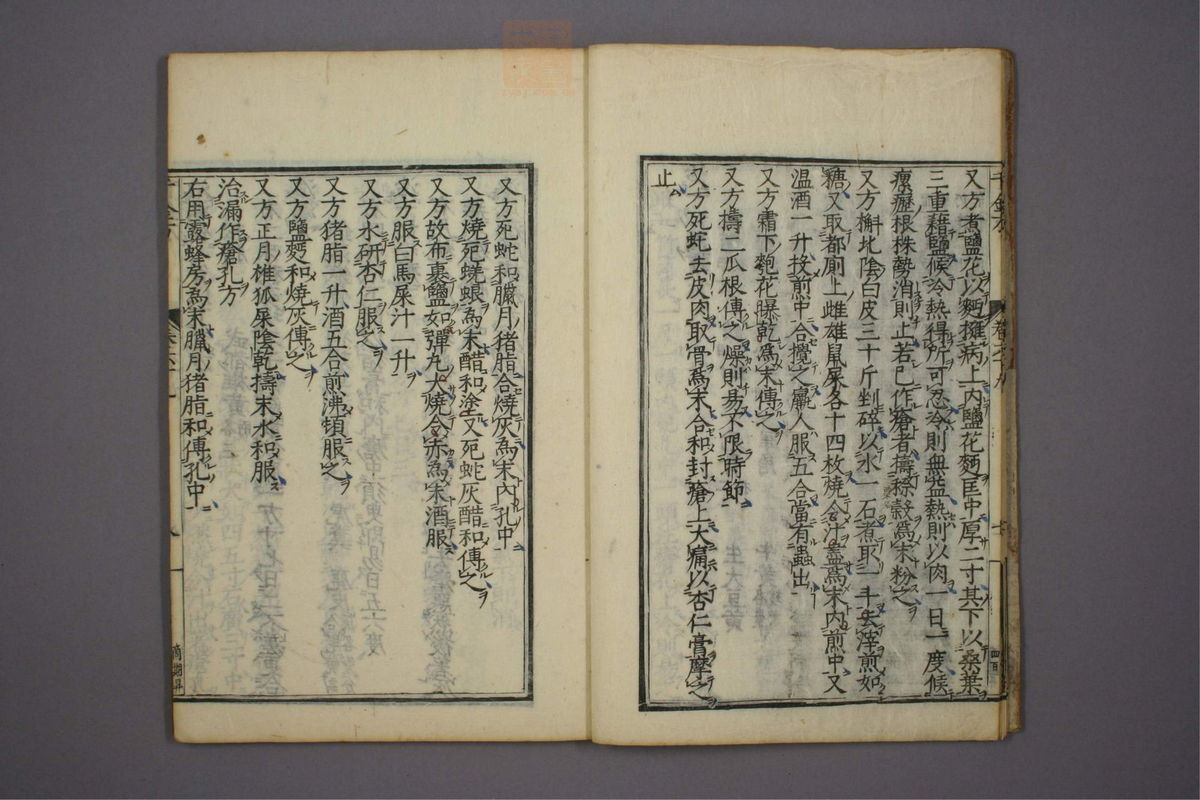 又方煮鹽花以麪擁病上內鹽花麪匡中厚二寸其下以桑葉
三重藉鹽候冷熱得所可忍冷則無益熱則以肉一日一度候
瘰癧根株勢消則止若已作瘡者擣穄穀為末粉之
又方槲北陰白皮三十斤剉碎以水一石煮取一斗去滓煎如
糖又取都廁上雌雄鼠屎各十四枚燒令汁盡為末內煎中又
温酒一升投煎中合攪之羸人服五合當有蟲出
又方霜下匏花曝乾為末傅之
又方擣二瓜根傅之燥則易不限時節
又方死蛇去皮肉取骨為末合和封瘡上大痛以杏仁膏摩之
止
又方死蛇和臘月猪脂合燒灰為末內孔中
又方燒死蜣蜋為末醋和塗又死蛇灰醋和傅之
又方故布裹鹽如彈丸大燒令赤為末酒服
又方服白馬屎汁一升
又方水研杏仁服之
又方猪脂一升酒五合煎沸頓服之
又方鹽麪和燒灰傅之
又方正月雄狐屎陰乾擣末水和服
治漏作瘡孔方
右用露蜂房為末臘月猪脂和傅孔中